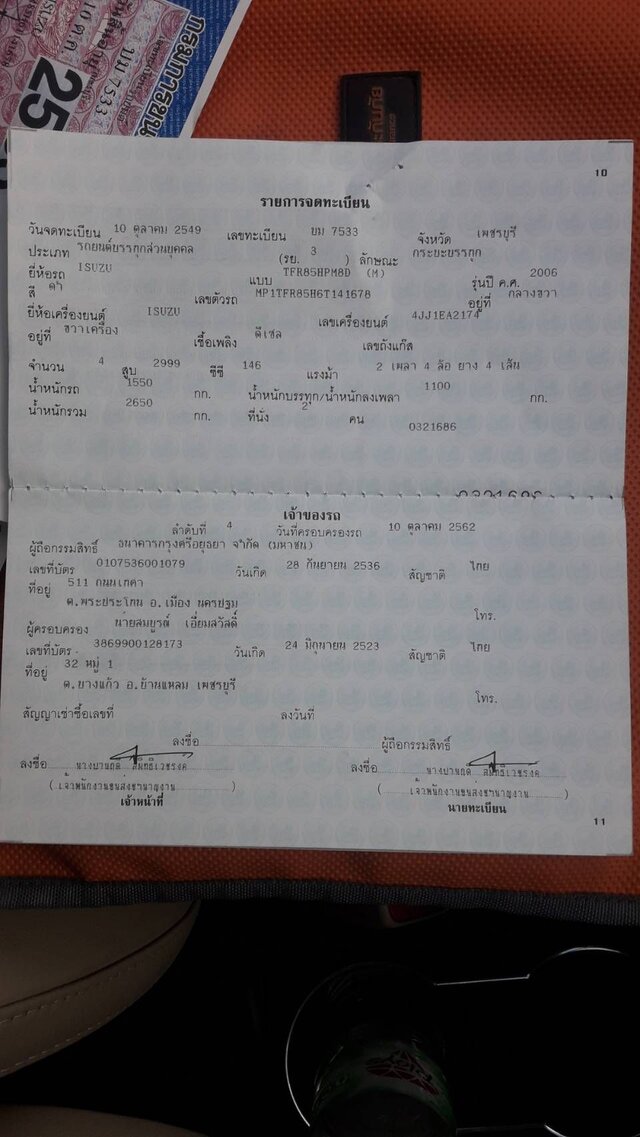 กรมการขนส
25
บม 7533
10 ต.ค.
10
รายการจดทะเบียน
วันจดทะเบียน 10 ตุลาคม 2549 เลขทะเบียน ยม 7533 จังหวัด เพชรบุรี
ประเภท รถยนต์บรรทุกส่วนบุคคล (รย. 3 ) ลักษณะ กระบะบรรทุก
ยี่ห้อรถ ISUZU แบบ TFR85HPM8D (M) รุ่นปี ค.ศ. 2006
สี ดำ เลขตัวรถ MP1TFR85H6T141678 อยู่ที่ กลางขวา
ยี่ห้อเครื่องยนต์ ISUZU เลขเครื่องยนต์ 4JJ1EA2174
อยู่ที่ ขวาเครื่อง เชื้อเพลิง ดีเซล เลขถังแก๊ส
จำนวน 4 สูบ 2999 ซีซี 146 แรงม้า 2 เพลา 4 ล้อ ยาง 4 เส้น
น้ำหนักรถ 1550 กก. น้ำหนักบรรทุก/น้ำหนักลงเพลา 1100 กก.
น้ำหนักรวม 2650 กก. ที่นั่ง 2 คน
0321686
เจ้าของรถ
ลำดับที่ 4 วันที่ครอบครองรถ 10 ตุลาคม 2562
ผู้ถือกรรมสิทธิ์ ธนาคารกรุงศรีอยุธยา จำกัด (มหาชน)
เลขที่บัตร 0107536001079 วันเกิด 28 กันยายน 2536 สัญชาติ ไทย
ที่อยู่ 511 ถนนเทศา
ต.พระประโทน อ.เมือง นครปฐม
โทร.
ผู้ครอบครอง นายสมบูรณ์ เอี่ยมสวัสดิ์
เลขที่บัตร 3869900128173 วันเกิด 24 มิถุนายน 2523 สัญชาติ ไทย
ที่อยู่ 32 หมู่ 1
ต.บางแก้ว อ.บ้านแหลม เพชรบุรี
โทร.
สัญญาเช่าซื้อเลขที่ ลงวันที่
ลงชื่อ ผู้ถือกรรมสิทธิ์
ลงชื่อ ลงชื่อ
(เจ้าพนักงานขนส่งชำนาญงาน) (เจ้าพนักงานขนส่งชำนาญงาน)
เจ้าหน้าที่ นายทะเบียน
11